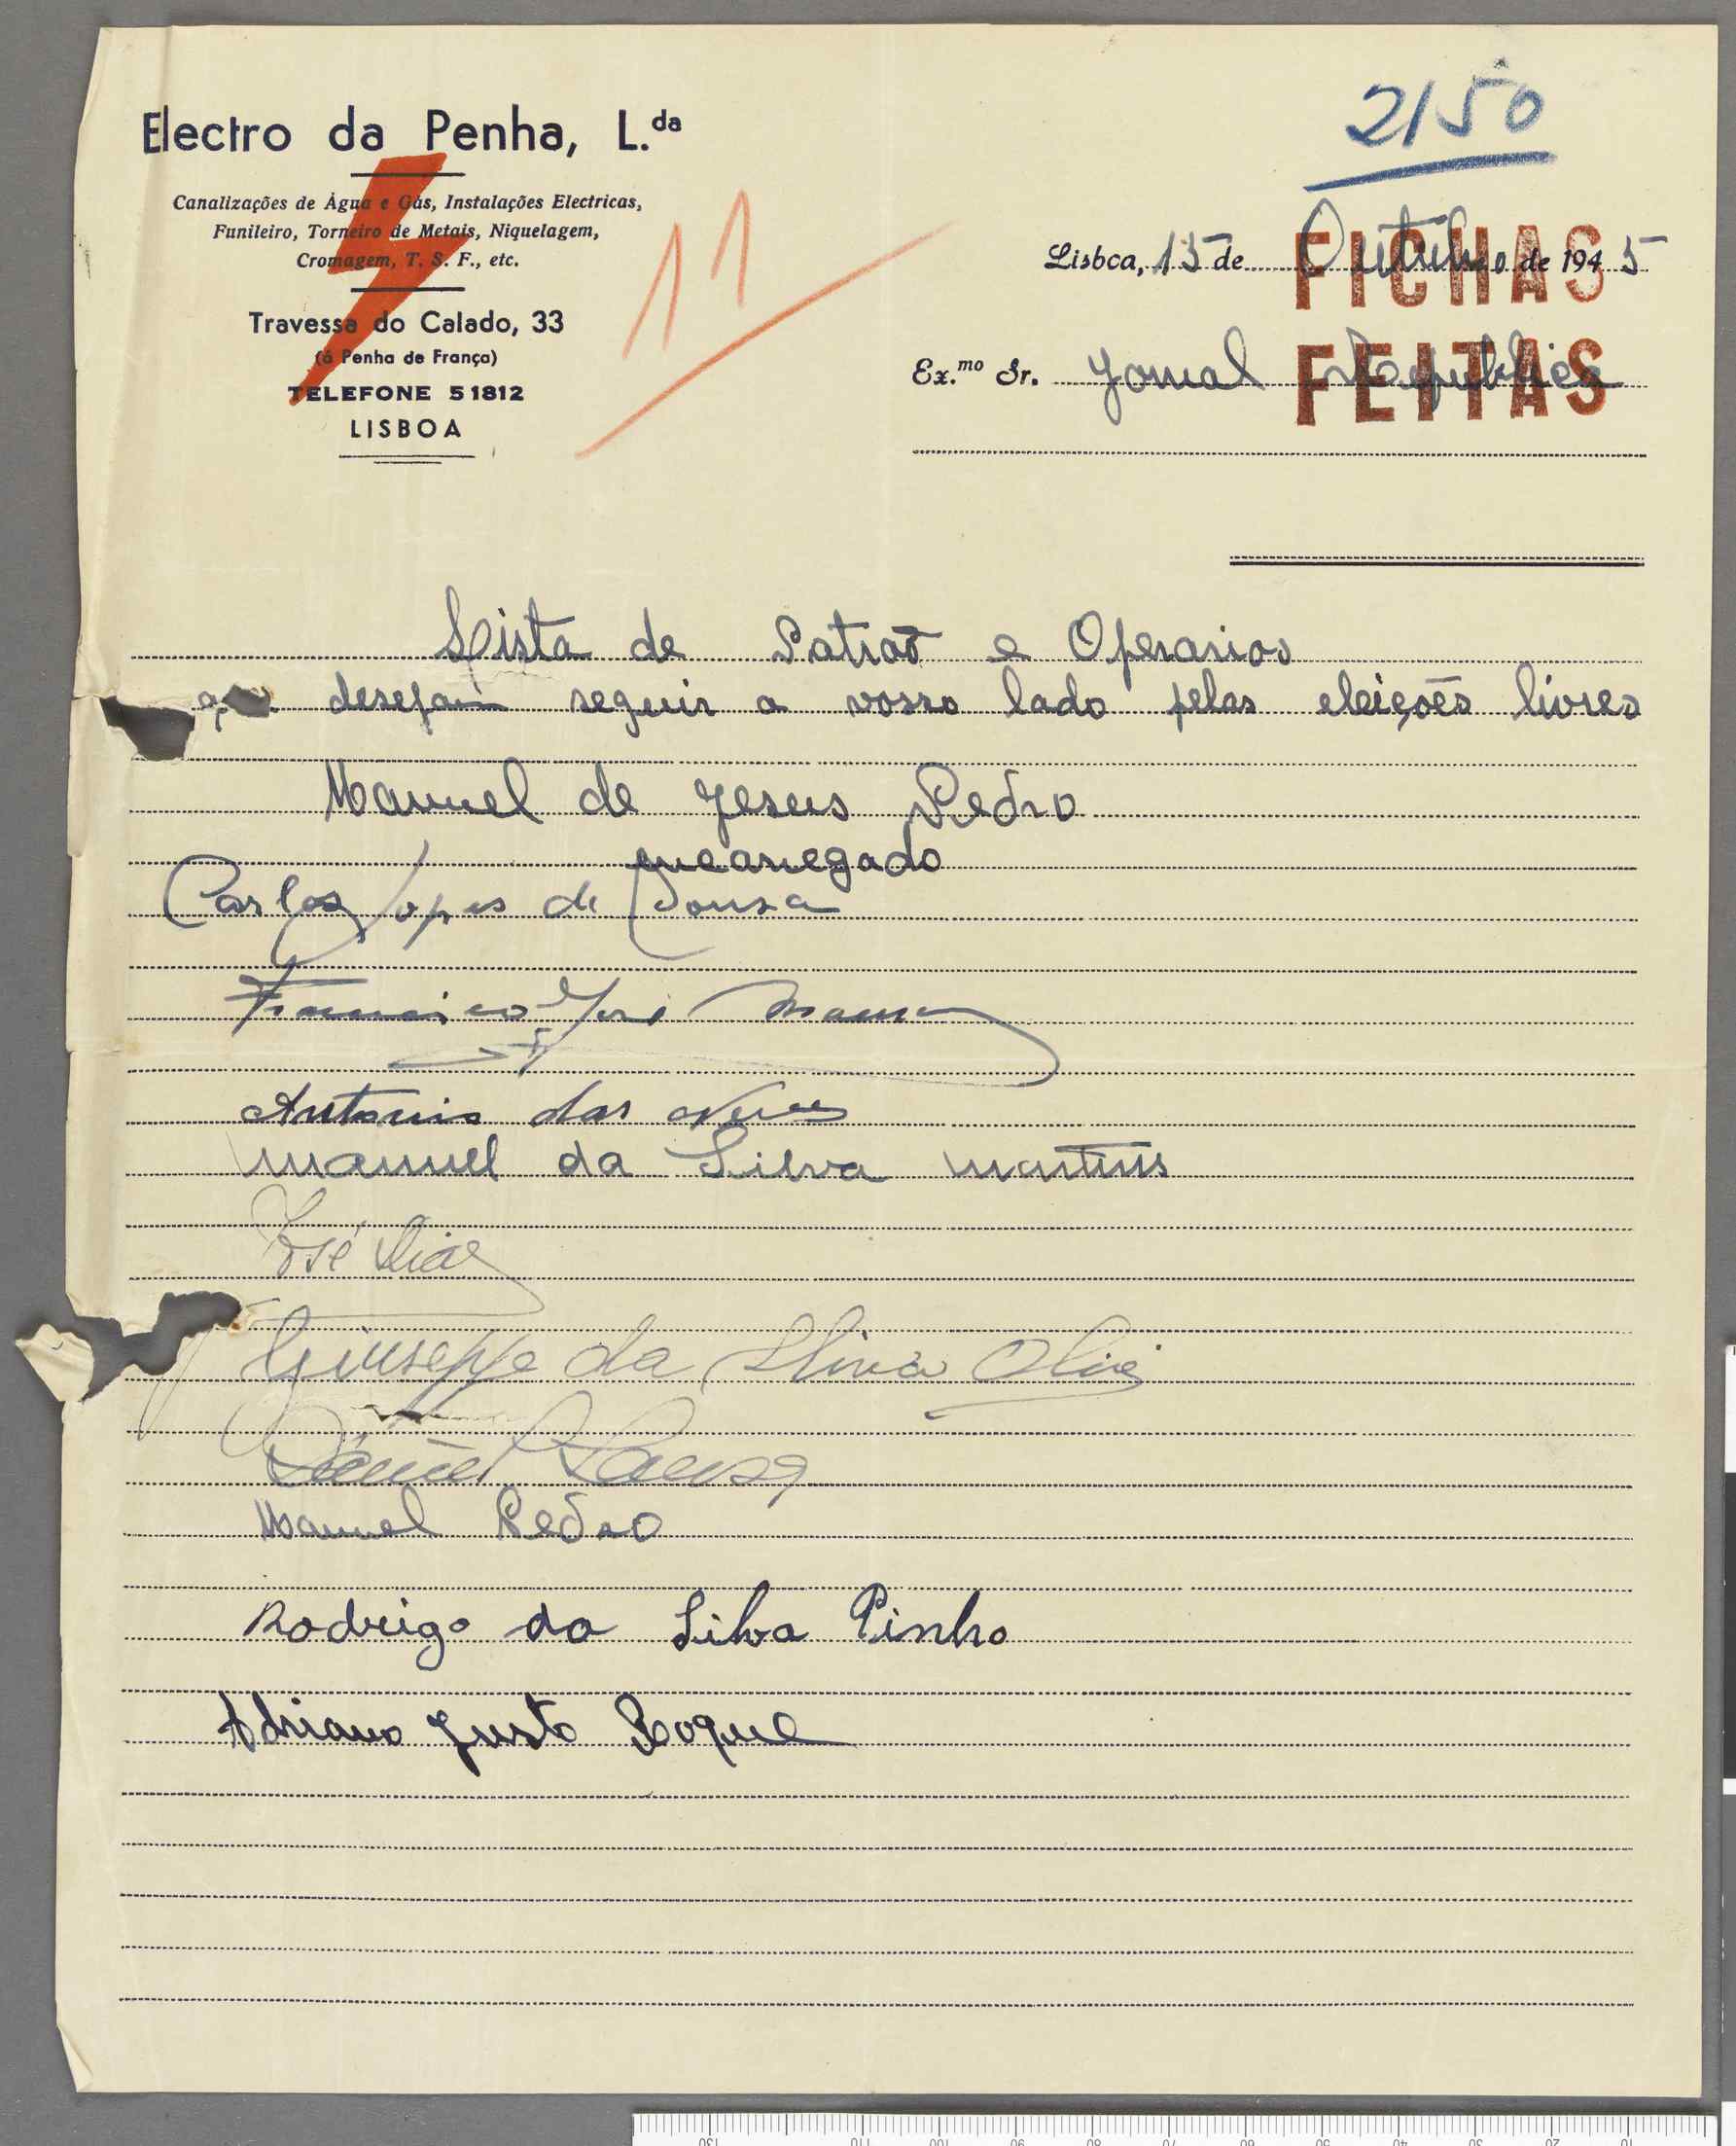 2150
Electro da Penha, L.da
Canalizações de Água e Gás, Instalações Electricas,
Funileiro, Torneiro de Metais, Niquelagem,
Cromagem, T. S. F., etc.
Travessa do Calado, 33
(á Penha de França)
TELEFONE 51812
LISBOA
11
Lisboa, 15 de Outubro de 1945
FICHAS
Ex.mo Sr. Jornal Republica
FEITAS
Lista de Patraõ e Operarios
desejam seguir a vosso lado pelas eleiçoẽs livres
Manuel de Jesus Pedro
encarregado
Carlos Lopes de Sousa
Francisco José
Antonio das Neves
Manuel da Silva Martins
José Dias
Giuseppe da Silva
Daniel Sousa
Manuel Pedro
Rodrigo da Silva Pinho
Adriano Justo Roque